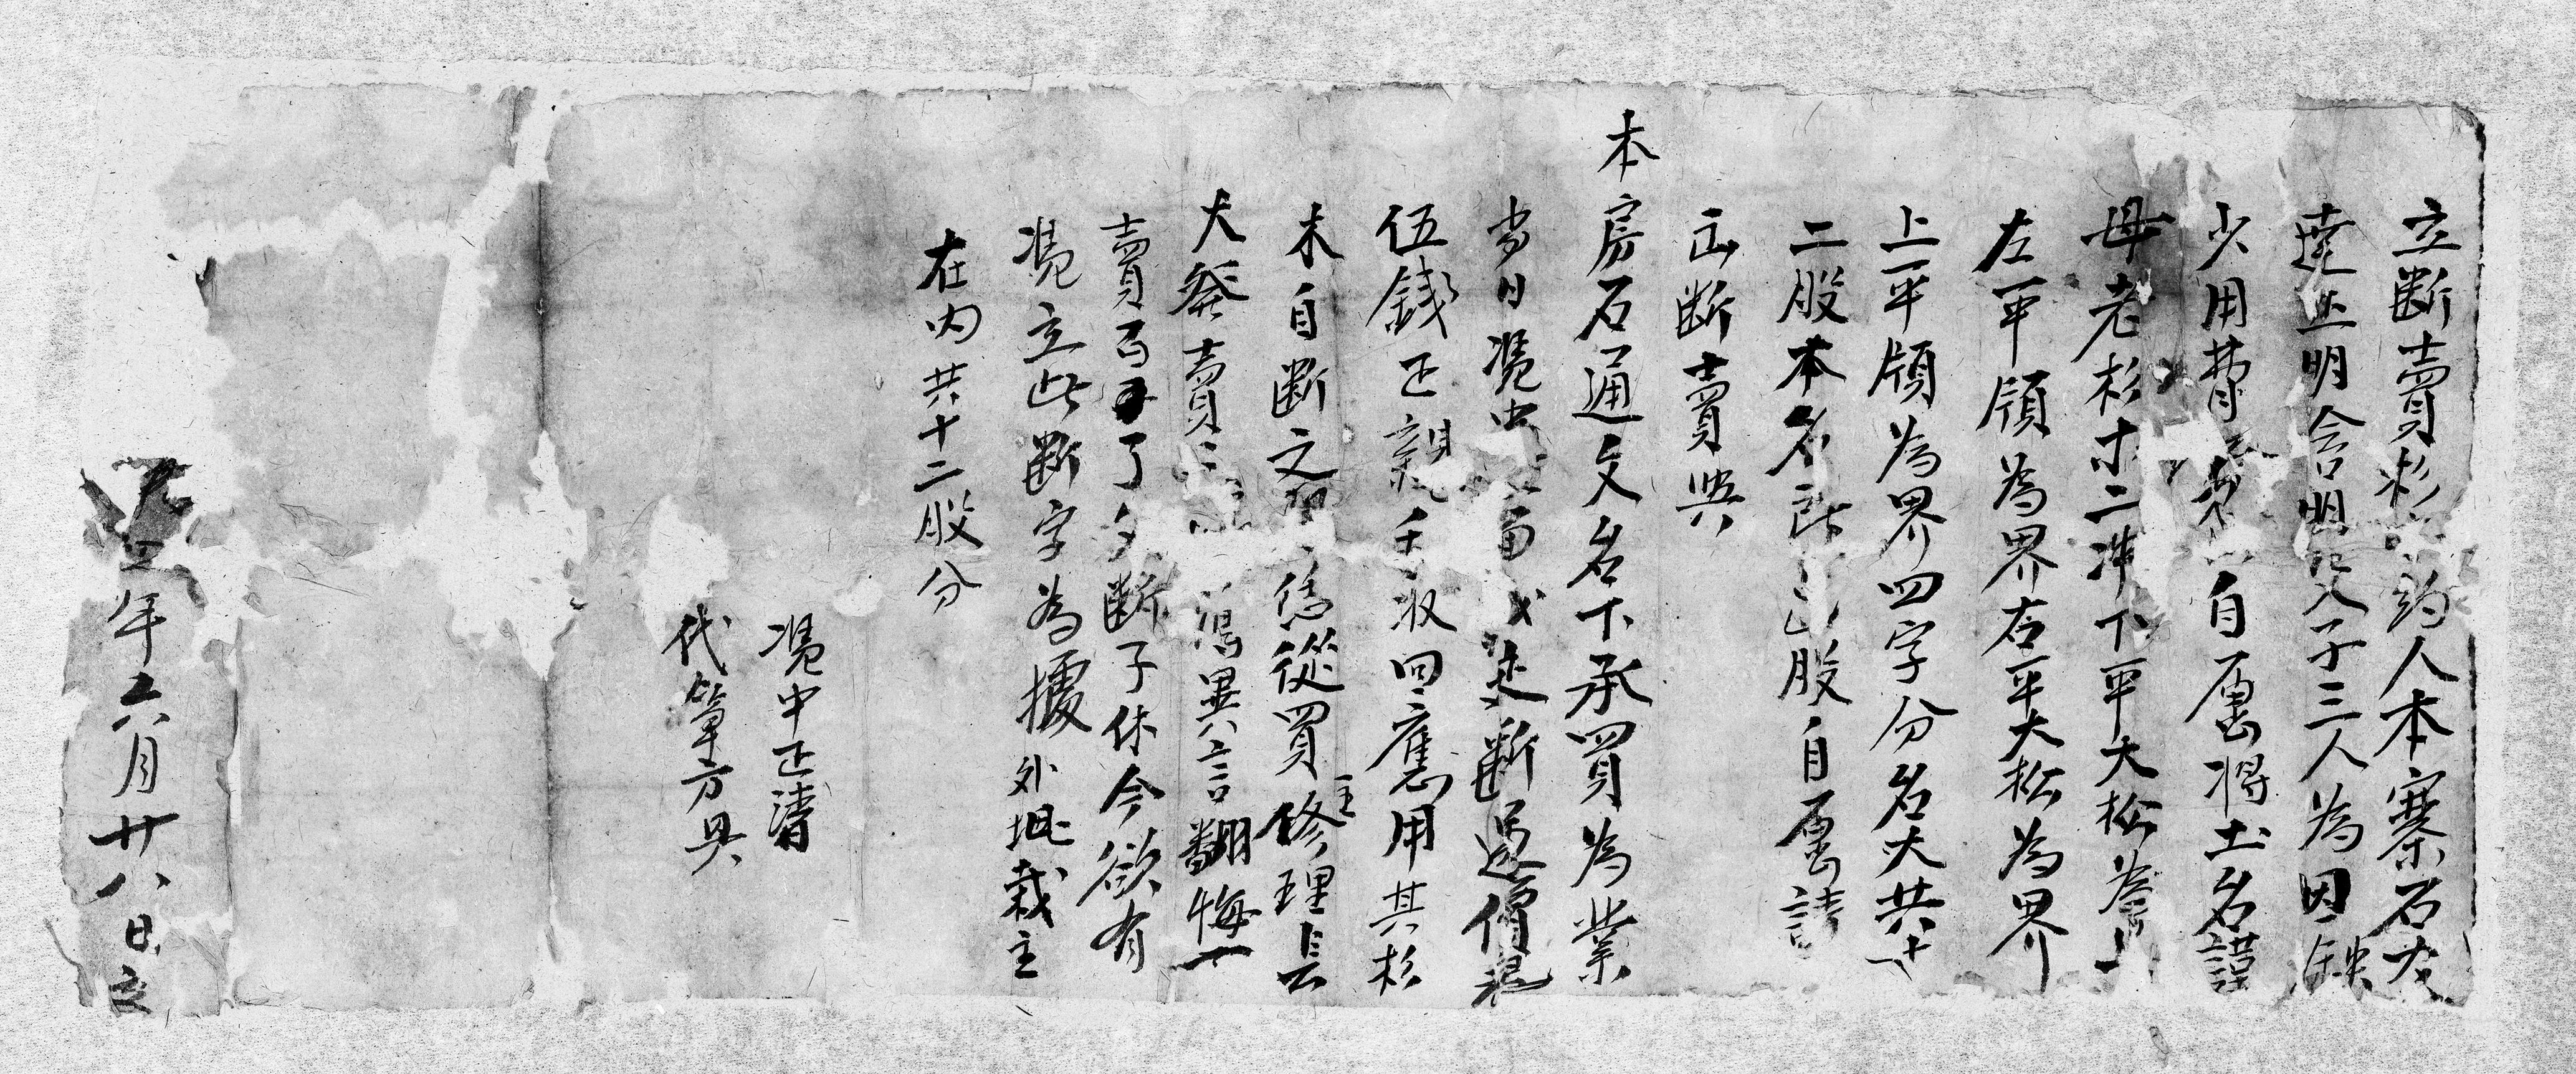 立断賣杉約人本寨石茂
達正明合明父子三人為因缺
少用費自愿將土名謹
母老杉木二冲下平大松為
左平領為界右平大松為界
上平領為界四字分名大共十
二股本名股自愿請
正断賣與
本房石通文名下承買為業
当日凴中面断過價艮
伍錢正親手收回應用其杉
木自断之后從買主修理長
大發賣異言翻悔一
賣百了父断子休今欲有
凴立此断字為據外坭栽主
在内共十二股分
凴中正清
代筆方具
年六月廿八日立